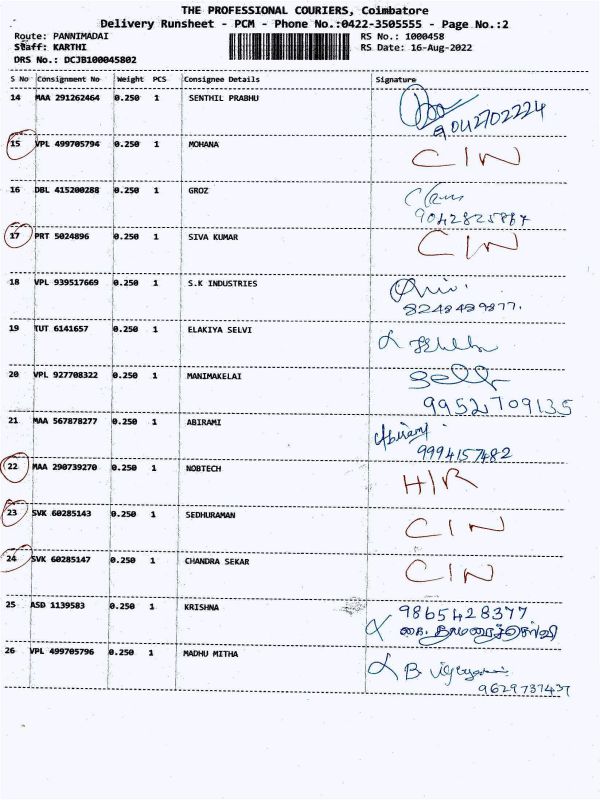 THE PROFESSIONAL COURIERS, Coimbatore
Delivery Runsheet - PCM - Phone No.:0422-3505555 - Page No.:2
Route: PANNIMADAI RS No.: 1000458
Staff: KARTHI RS Date: 16-Aug-2022
DRS No.: DCJB100045802
S No Consignment No Weight PCS Consignee Details Signature
14 MAA 291262464 0.250 1 SENTHIL PRABHU
9042702224
15 VPL 499705794 0.250 1 MOHANA CIN
16 DBL 415200288 0.250 1 GROZ
9042825867
17 PRT 5024896 0.250 1 SIVA KUMAR CIN
18 VPL 939517669 0.250 1 S.K INDUSTRIES
8248489877.
19 TUT 6141657 0.250 1 ELAKIYA SELVI
20 VPL 927708322 0.250 1 MANIMAKELAI
9952709135
21 MAA 567878277 0.250 1 ABIRAMI Abirami
9994157482
22 MAA 290739270 0.250 1 NOBTECH H/R
23 SVK 60285143 0.250 1 SEDHURAMAN CIN
24 SVK 60285147 0.250 1 CHANDRA SEKAR CIN
25 ASD 1139583 0.250 1 KRISHNA 9865428377
கை. தாமரைச்செல்வி
26 VPL 499705796 0.250 1 MADHU MITHA B
9629737437